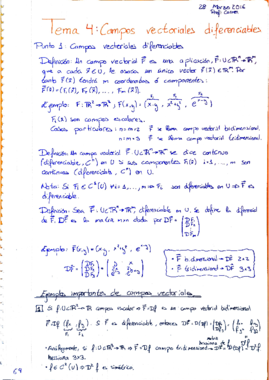 28 Marzo 2016
Tema 4: Campos vectoriales diferenciables
Punto 1: Campos vectoriales diferenciables
Definición: Un campo vectorial F es una aplicación, F: U⊂ℝⁿ→ℝᵐ,
que a cada x̄∈U, le asocia un único vector F(x̄)∈ℝᵐ. Por
tanto F(x̄) tendrá m coordenadas o componentes.
F(x̄) = (F₁(x̄), F₂(x̄), ..., Fₘ(x̄)).
Ejemplo: F: ℝ²→ℝ³, F(x,y) = (x·y, x²+y²,
Fᵢ(x) son campos escalares.
Casos particulares: n=m=2 F se llama campo vectorial bidimensional.
n=m=3 F se llama campo vectorial tridimensional.
Definición: Un campo vectorial F: U⊂ℝⁿ→ℝᵐ se dice continuo
(diferenciable, C¹) en U si sus componentes Fᵢ(x̄) i=1, ..., m son
continuas (diferenciables, C¹) en U.
Nota: Si Fᵢ∈C¹(U) ∀i=1, ..., m ⇒ Fᵢ son diferenciables en U ⇒ F es
diferenciable.
Definición: Sea F: U⊂ℝⁿ→ℝᵐ, diferenciable en U, se define la diferencial
de F, DF es la matriz m×n dada por DF =
Ejemplo: F(x,y) = (x·y, x²+y²,
DF =
• F bidimensional → DF 2×2
• F tridimensional → DF 3×3
Ejemplos importantes de campos vectoriales.
1 Si f: U⊂ℝ²→ℝ campo escalar ⇒ F=∇f es un campo vectorial bidimensional.
Si F es diferenciable, entonces DF = D(∇f) =
• Análogamente, si f: U⊂ℝ³→ℝ ⇒ F=∇f campo tridimensional ⇒ DF = D(∇f) =
Hessiana 3×3.
• f∈C²(U) ⇒ D²f es simétrica.
64